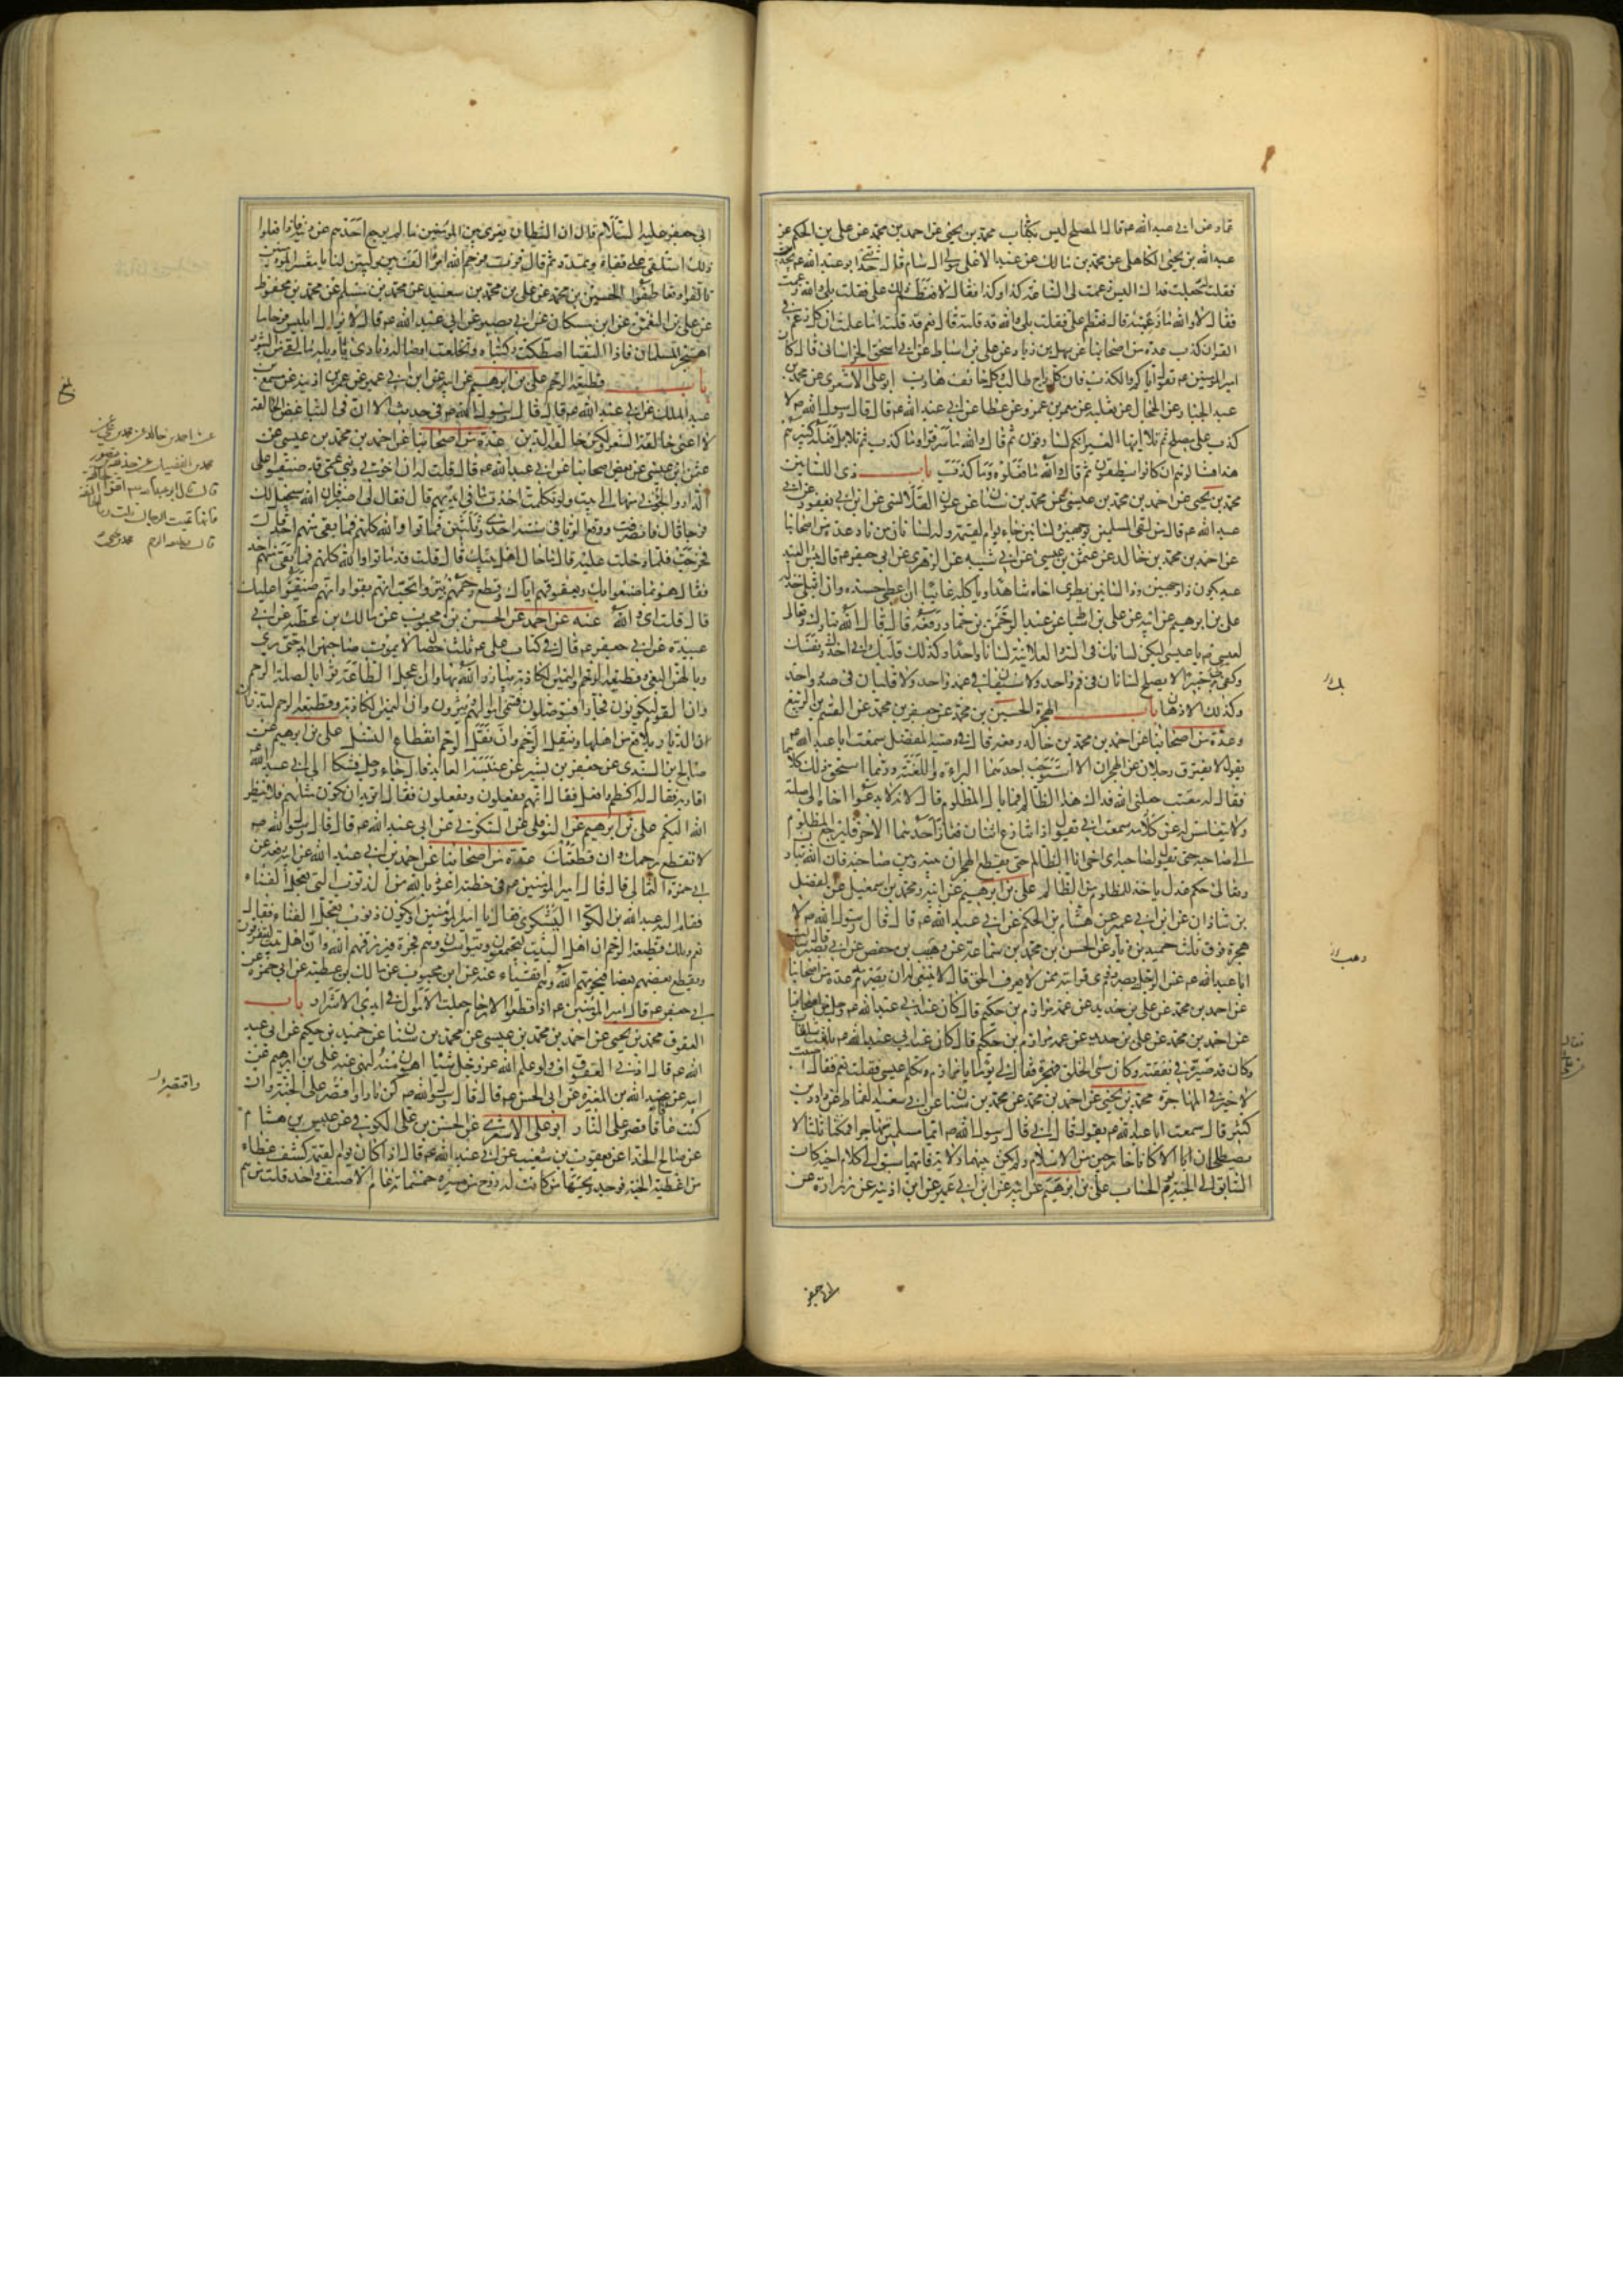 عماد عن ابى عبد الله عم قال المصلح ليس بكذاب محمد بن يحيى عن احمد بن محمد عن على بن الحكم عن
عبد الله بن يحيى الكاهلى عن محمد بن مالك عن عبد الاعلى مولى ال سام قال حدثنى ابو عبد الله عم بحديث
فقلت له جعلت فداك اليس زعمت لى الساعة كذا وكذا فقال لا فعظم ذلك على فقلت بلى والله زعمت
فقال لا والله ما زعمته قال فعظم على فقلت بلى والله قد قلته قال نعم قد قلته اما علمت ان كل زعم فى
القران كذب عدة من اصحابنا عن سهل بن زياد عن على بن اسباط عن ابى اسحق الخراسانى قال كان
امير المومنين عم يقول اياكم والكذب فان كل راج طالب وكل خائف هارب ابو على الاشعرى عن محمد بن
عبد الجبار عن الحجال عن ثعلبه عن معمر بن عمرو عن عطا عن ابى عبد الله عم قال قال رسول الله ص لا
كذب على مصلح ثم تلا ايتها العير انكم لسارقون ثم قال والله ما سرقوا وما كذب ثم تلا بل فعله كبيرهم
هذا فسالوهم ان كانوا ينطقون ثم قال والله ما فعلوه وما كذب باب ذى اللسانين
محمد بن يحيى عن احمد بن محمد بن عيسى عن محمد بن سنان عن عون القلانسى عن ابن ابى يعفور عن ابى
عبد الله عم قال من لقى المسلمين بوجهين ولسانين جاء يوم القيمة وله لسانان من نار عدة من اصحابنا
عن احمد بن محمد بن خالد عن عثمن بن عيسى عن ابى شيبه عن الزهرى عن ابى جعفر عم قال بئس العبد
عبد يكون ذا وجهين وذا لسانين يطرى اخاه شاهدا وياكله غائبا ان اعطى حسده وان ابتلى خذله
على بن ابرهيم عن ابيه عن على بن اسباط عن عبد الرحمن بن حماد رفعه قال قال الله تبارك وتعالى
لعيسى عم يا عيسى ليكن لسانك فى السر والعلانية لسانا واحدا وكذلك قلبك انى احذرك نفسك
وكفى بى خبيرا لا يصلح لسانان فى فم واحد ولا سيفان فى غمد واحد ولا قلبان فى صدر واحد
وكذلك الاذهان باب الهجرة الحسين بن محمد عن جعفر بن محمد عن القسم بن الربيع
وعدة من اصحابنا عن احمد بن محمد بن خالد رفعه قال فى وصية المفضل سمعت ابا عبد الله عم
يقول لا يفترق رجلان على الهجران الا استوجب احدهما البراءة واللعنة وربما استحق ذلك كلاهما
فقال له معتب جعلنى الله فداك هذا الظالم فما بال المظلوم قال لانه لا يدعوا اخاه الى صلته
ولا يتغامس له عن كلامه سمعت ابى يقول اذا تنازع اثنان فعاز احدهما الاخر فليرجع المظلوم
الى صاحبه حتى يقول لصاحبه اى اخى انا الظالم حتى يقطع الهجران بينه وبين صاحبه فان الله تبارك
وتعالى حكم عدل ياخذ للمظلوم من الظالم على بن ابرهيم عن ابيه ومحمد بن اسمعيل عن الفضل
بن شاذان عن ابن ابى عمير عن هشام بن الحكم عن ابى عبد الله عم قال قال رسول الله ص لا
هجرة فوق ثلث حميد بن زياد عن الحسن بن محمد بن سماعة عن وهيب بن حفص عن ابى بصير قال سالت
ابا عبد الله عم عن الرجل يصرم ذوى قرابته ممن لا يعرف الحق قال لا ينبغى له ان يصرمه عدة من اصحابنا
عن احمد بن محمد عن على بن حديد عن عمه مرازم بن حكيم قال كان عند ابى عبد الله عم رجل من اصحابنا
وكان قد صيره فى نفقته وكان سئ الخلق فهجره فقال لى يوما يا مرازم وتكلم عيسى فقلت نعم فقال اصبت
لا خير فى المهاجرة محمد بن يحيى عن احمد بن محمد عن محمد بن سنان عن ابى سعيد القماط عن داود بن
كثير قال سمعت ابا عبد الله عم يقول قال ابى قال رسول الله ص ايما مسلمين تهاجرا فمكثا ثلثا لا
يصطلحان الا كانا خارجين من الاسلام ولم يكن بينهما ولاية فايهما سبق الى كلام اخيه كان
السابق الى الجنة يوم الحساب على بن ابرهيم عن ابيه عن ابن ابى عمير عن ابن اذينه عن زرارة عن
ابى جعفر
ابى جعفر عليه السلام قال ان الشيطان يغرى بين المومنين ما لم يرجع احدهم عن دينه فاذا فعلوا
ذلك استلقى على قفاه وتمدد ثم قال فزت فرحم الله امرا الف بين وليين لنا يا معشر المومنين
تالفوا وتعاطفوا الحسين بن محمد عن على بن محمد بن سعيد عن محمد بن مسلم عن محمد بن محفوظ
عن على بن النعمن عن ابن مسكان عن ابى بصير عن ابى عبد الله عم قال لا يزال ابليس فرحا ما
اهتجر المسلمان فاذا التقيا اصطكت ركبتاه وتخلعت اوصاله ونادى يا ويله ما لقى من الثبور
باب قطيعة الرحم على بن ابرهيم عن ابيه عن ابن ابى عمير عن عمر بن اذينه عن مسمع بن
عبد الملك عن ابى عبد الله عم قال قال رسول الله ص فى حديث الا ان فى التباغض الحالقه
لا اعنى حالقة الشعر ولكن حالقة الدين عدة من اصحابنا عن احمد بن محمد بن عيسى عن
عثمن بن عيسى عن بعض اصحابنا عن ابى عبد الله عم قال قلت له ان اخوتى وبنى عمى قد ضيقوا على
الدار والجؤنى منها الى بيت ولو تكلمت اخذت ما فى ايديهم قال فقال لى اصبر فان الله سيجعل لك
فرجا قال فانصرفت ووقع الوبا فى سنة احدى وثلثين فماتوا والله كلهم فما بقى منهم احد قال
فخرجت فلما دخلت عليه قال ما حال اهل بيتك قال قلت قد ماتوا والله كلهم فما بقى منهم احد
فقال هو بما صنعوا بك وبعقوقهم اياك وقطع رحمهم بتروا اتحب انهم بقوا وانهم ضيقوا عليك
قال قلت اى والله عنه عن احمد عن الحسن بن محبوب عن مالك بن عطيه عن ابى
عبيدة عن ابى جعفر عم قال فى كتاب على عم ثلث خصال لا يموت صاحبهن ابدا حتى يرى
وبالهن البغى وقطيعة الرحم واليمين الكاذبة يبارز الله بها وان اعجل الطاعة ثوابا لصلة الرحم
وان القوم ليكونون فجارا فيتواصلون فتنمى اموالهم ويثرون وان اليمين الكاذبة وقطيعة الرحم لتذران
الديار بلاقع من اهلها وتنقل الرحم وان نقل الرحم انقطاع النسل على بن ابرهيم عن
صالح بن السندى عن جعفر بن بشير عن عنبسة العابد قال جاء رجل فشكا الى ابى عبد الله عم
اقاربه فقال له اكظم وافعل فقال انهم يفعلون ويفعلون فقال اتريد ان تكون مثلهم فلا ينظر
الله اليكم على بن ابرهيم عن ابيه عن النوفلى عن السكونى عن ابى عبد الله عم قال قال رسول الله ص
لا تقطع رحمك وان قطعتك عدة من اصحابنا عن احمد بن ابى عبد الله عن ابيه رفعه عن
ابى حمزة الثمالى قال قال امير المؤمنين عم فى خطبته اعوذ بالله من الذنوب التى تعجل الفناء
فقام اليه عبد الله بن الكوا اليشكرى فقال يا امير المؤمنين او يكون ذنوب تعجل الفناء فقال
نعم ويلك قطيعة الرحم ان اهل البيت ليجتمعون ويتواسون وهم فجرة فيرزقهم الله وان اهل البيت ليتفرقون
ويقطع بعضهم بعضا فيحرمهم الله وهم اتقياء عنه عن ابن محبوب عن مالك بن عطيه عن ابى حمزة عن
ابى جعفر عم قال امير المؤمنين عم اذا قطعوا الارحام جعلت الاموال فى ايدى الاشرار باب
العقوق محمد بن يحيى عن احمد بن محمد بن عيسى عن محمد بن سنان عن حديد بن حكيم عن ابى عبد
الله عم قال ادنى العقوق اف ولو علم الله عز وجل شيئا اهون منه لنهى عنه على بن ابرهيم عن
ابيه عن عبد الله بن المغيرة عن ابى الحسن عم قال قال رسول الله ص كن بارا واقصر على الجنة وان
كنت عاقا فاقصر على النار ابو على الاشعرى عن الحسن بن على الكوفى عن عبيس بن هشام
عن صالح الحذا عن يعقوب بن شعيب عن ابى عبد الله عم قال اذا كان يوم القيمة كشف غطاء
من اغطية الجنة فوجد ريحها من كانت له روح من مسيرة خمسمائة عام الا صنف واحد قلت من هم